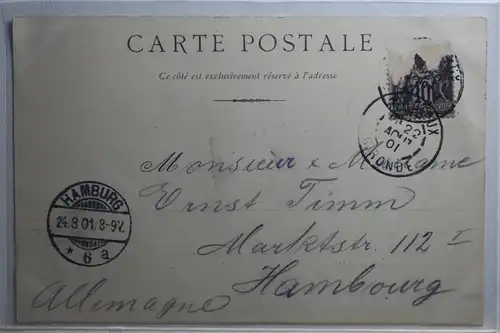 CARTE POSTALE
Ce côté est exclusivement réservé à l'adresse
22
AOUT
01
GIRONDE
Monsieur & Madame
Ernst Timm
Marktstr. 112 I
Hambourg
Allemagne
HAMBURG
24.8.01.8-9V.
* 6 a